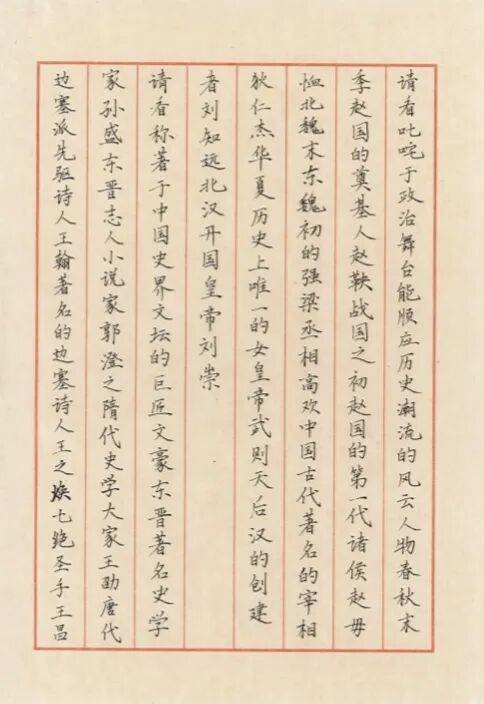 请看吐咤于政治舞台能顺应历史潮流的风云人物春秋末
季赵国的奠基人赵鞅战国之初赵国的第一代诸侯赵毋
恤北魏末东魏初的强梁丞相高欢中国古代著名的宰相
狄仁杰华夏历史上唯一的女皇帝武则天后汉的创建
者刘知远北汉开国皇帝刘崇
请看称著于中国史界文坛的巨匠文豪东晋著名史学
家孙盛东晋志人小说家郭澄之隋代史学大家王劭唐代
边塞派先驱诗人王翰著名的边塞诗人王之焕七绝圣手王昌